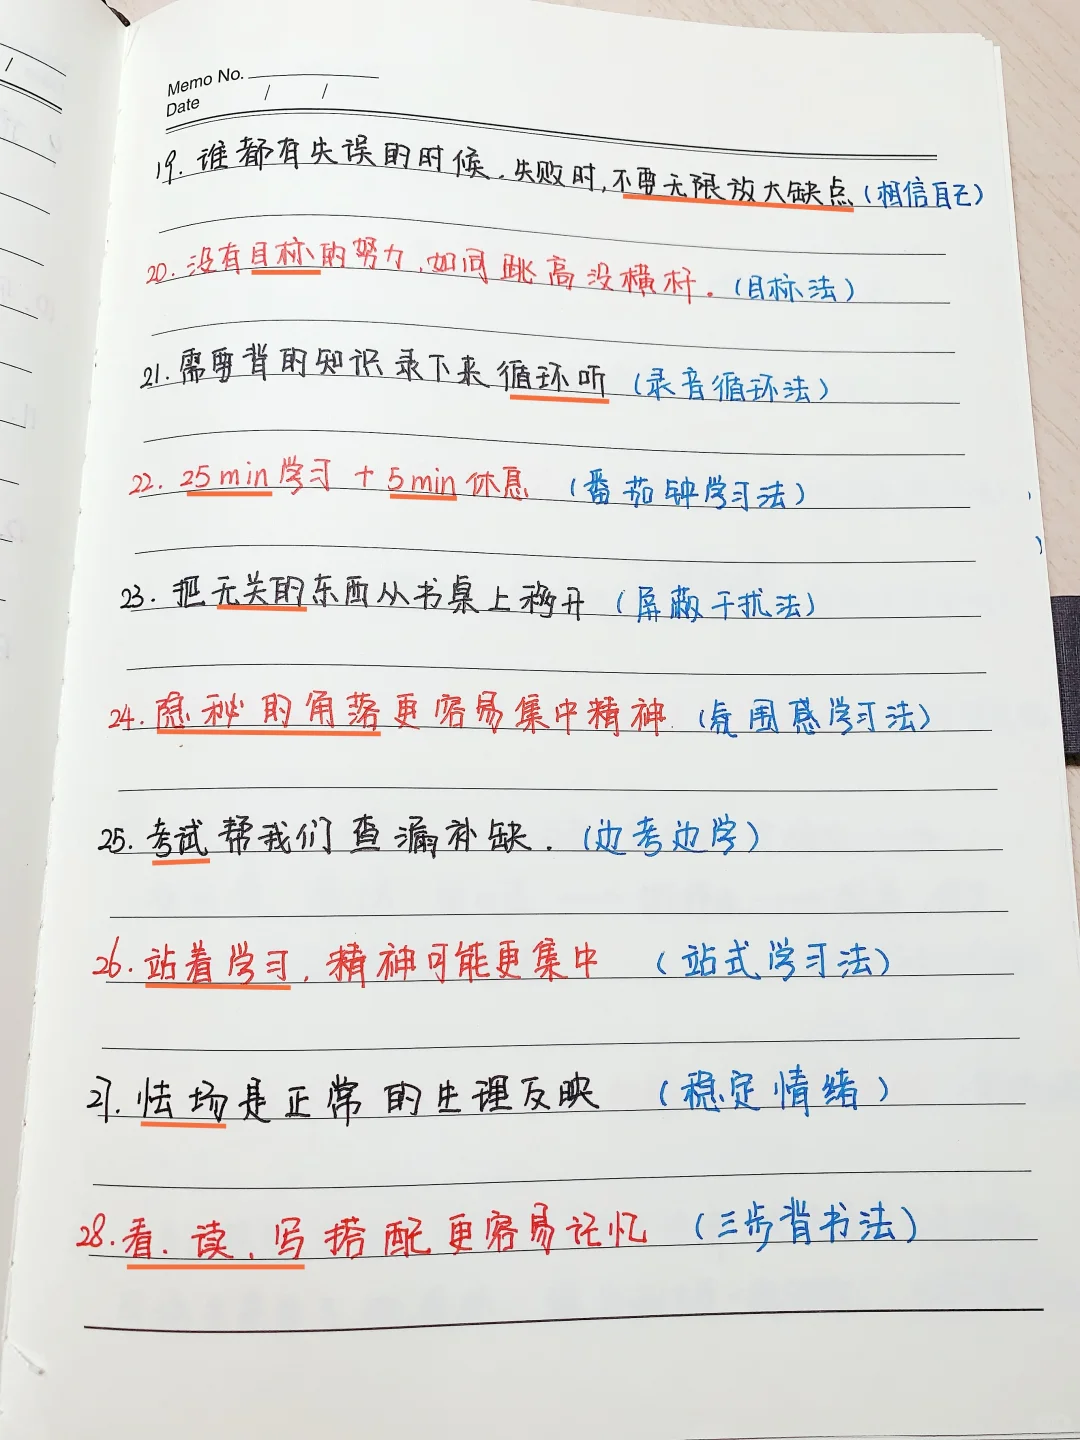 Memo No.
Date / /
19. 谁都有失误的时候，失败时，不要无限放大缺点（相信自己）
20. 没有目标的努力，如同跳高没横杆．（目标法）
21. 需要背的知识录下来循环听（录音循环法）
22. 25min学习 + 5min休息（番茄钟学习法）
23. 把无关的东西从书桌上移开（屏蔽干扰法）
24. 隐秘的角落更容易集中精神．（氛围感学习法）
25. 考试帮我们查漏补缺．（边考边学）
26. 站着学习，精神可能更集中（站式学习法）
27. 怯场是正常的生理反映（稳定情绪）
28. 看、读、写搭配更容易记忆（三步背书法）